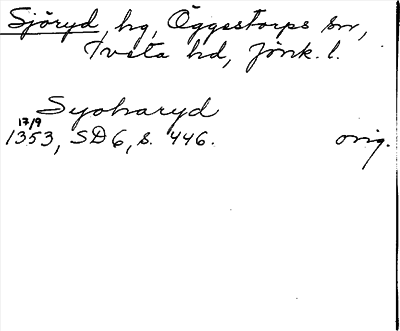 Sjöryd, hg, Öggestorps sn,
Tveta hd, Jönk. l.
Syoharyd
17/9
1353, SD 6, s. 446. orig.